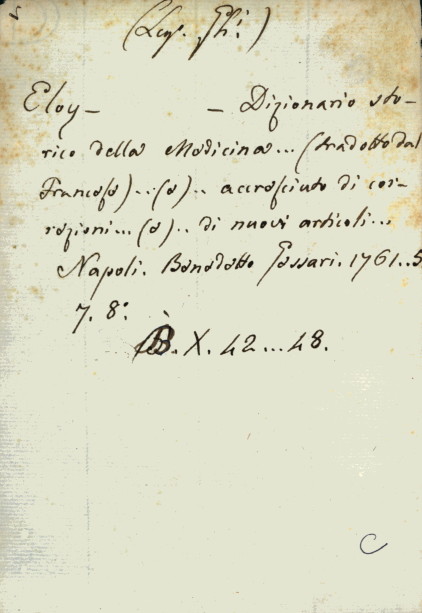 5
(Leg. Ghi.)
Eloy — — Dizionario sto-
rico della Medicina... (tradotto dal
Francese)...(e).. accresciuto di cor-
rezioni...(e).. di nuovi articoli...
Napoli. Benedetto Gessari. 1761..5
7. 8°.
B. X. 42...48.
C